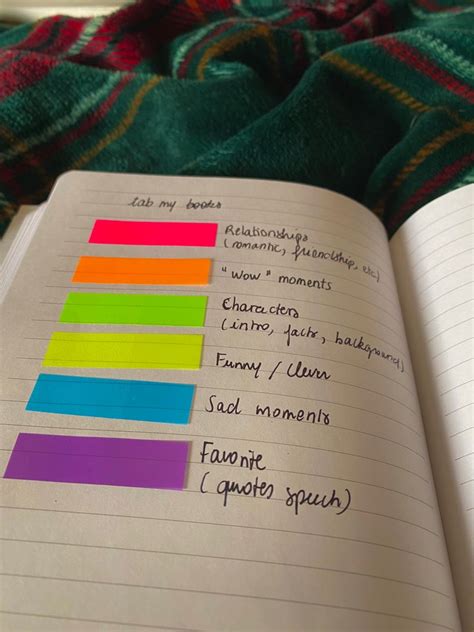 tab my books
Relationships
(romantic, friendship, etc)
"Wow" moments
Characters
(intro, facts, background)
Funny / Clever
Sad moments
Favorite
(quotes speech)